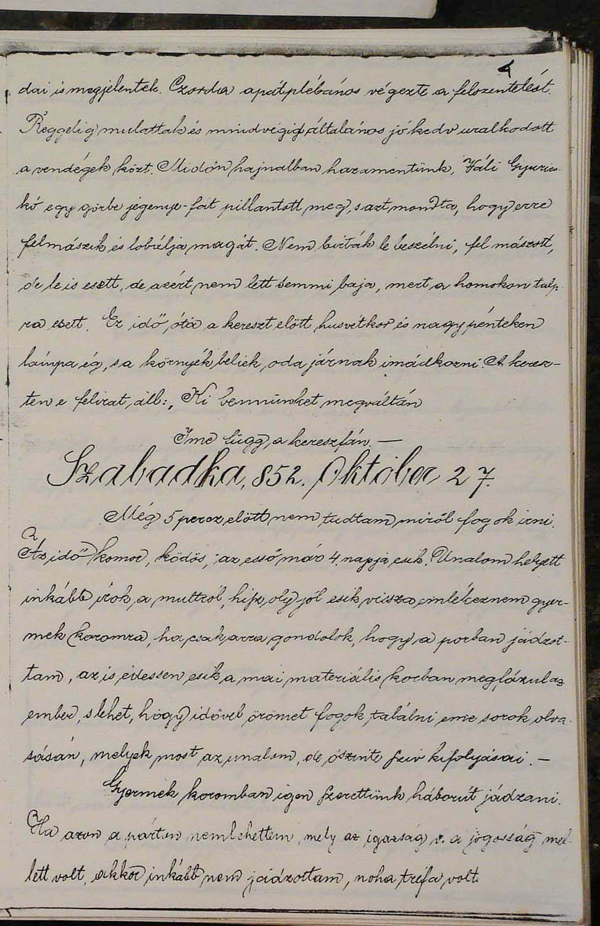 4
dai is megjelentek. Czorda apátplébános végezte a felszentelést.
Reggelig mulattak és mindvégig általános jó kedv uralkodott
a vendégek közt. Midőn hajnalban hazamentünk, Váli Gyuri-
kó egy görbe jegenye-fát pillantott meg, s azt mondta, hogy erre
felmászik és lobálja magát. Nem birták le beszélni, fel mászott,
de le is esett, de azért nem lett semmi baja, mert a homokon talp-
ra esett. Ez idő óta a kereszt előtt husvétkor és nagypénteken
lámpa ég, s a környék beliek, oda járnak imádkozni. A keresz-
ten e felirat áll: „Ki bennünket megváltán
Ime függ a keresztfán. —
Szabadka, 852. Október 27.
Még 5 percz előtt nem tudtam miről fogok irni.
Az idő komor, ködös, az eső már 4 napja esik. Unalom helyett
inkább irok a multról, hisz oly jól esik vissza emlékeznem gyer-
mek koromra, ha csak arra gondolok, hogy a porban játszot-
tam, az is édessen esik a mai materiális korban meglázula
ember, s lehet, hogy idővel örömet fogok találni eme sorok olva-
sásán, melyek most az unalom, de őszinte sziv kifolyásai. —
Gyermek koromban igen szerettünk háborút játszani.
Ha azon a párton nem lehettem, mely az igazság s a jogosság mel-
lett volt, akkor inkább nem játszottam, noha tréfa volt